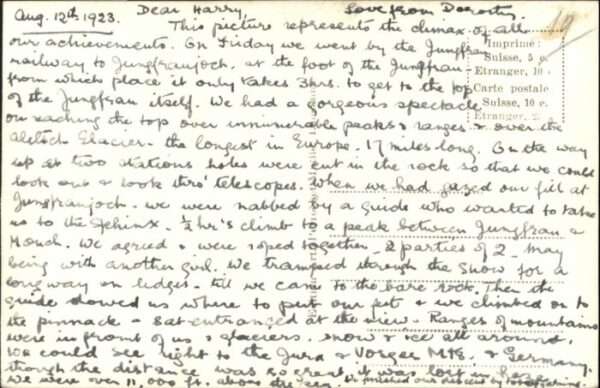 Aug. 12th 1923. Dear Harry, Love from Dorothy.
This picture represents the climax of all
our achievements. On Friday we went by the Jungfrau
railway to Jungfraujoch. at the foot of the Jungfrau
from which place it only takes 3 hrs. to get to the top
of the Jungfrau itself. We had a gorgeous spectacle
on reaching the top over innumerable peaks & ranges & over the
Aletsch Glacier - the longest in Europe. 17 miles long. On the way
up at two stations holes were cut in the rock so that we could
look out & look thro' telescopes. When we had gazed our fill at
Jungfraujoch. we were nabbed by a guide who wanted to take
us to the Sphinx. ¼ hr's climb to a peak between Jungfrau &
Monch. We agreed & were roped together. 2 parties of 2 - May
being with another girl. We tramped through the snow for a
long way on ledges - till we came to the bare rock. Then the
guide showed us where to put our feet & we climbed on to
the pinnacle - & sat entranced at the view. Ranges of mountains
were in front of us & glaciers. snow & ice all around.
We could see right to the Jura & Vosges Mts. & Germany,
though the distance was so great, it was lost in haze
We were over 11,000 ft. above the sea.
Imprimé:
Suisse, 5 c.
Etranger, 10 c.
Carte postale
Suisse, 10 c.
Etranger, 2